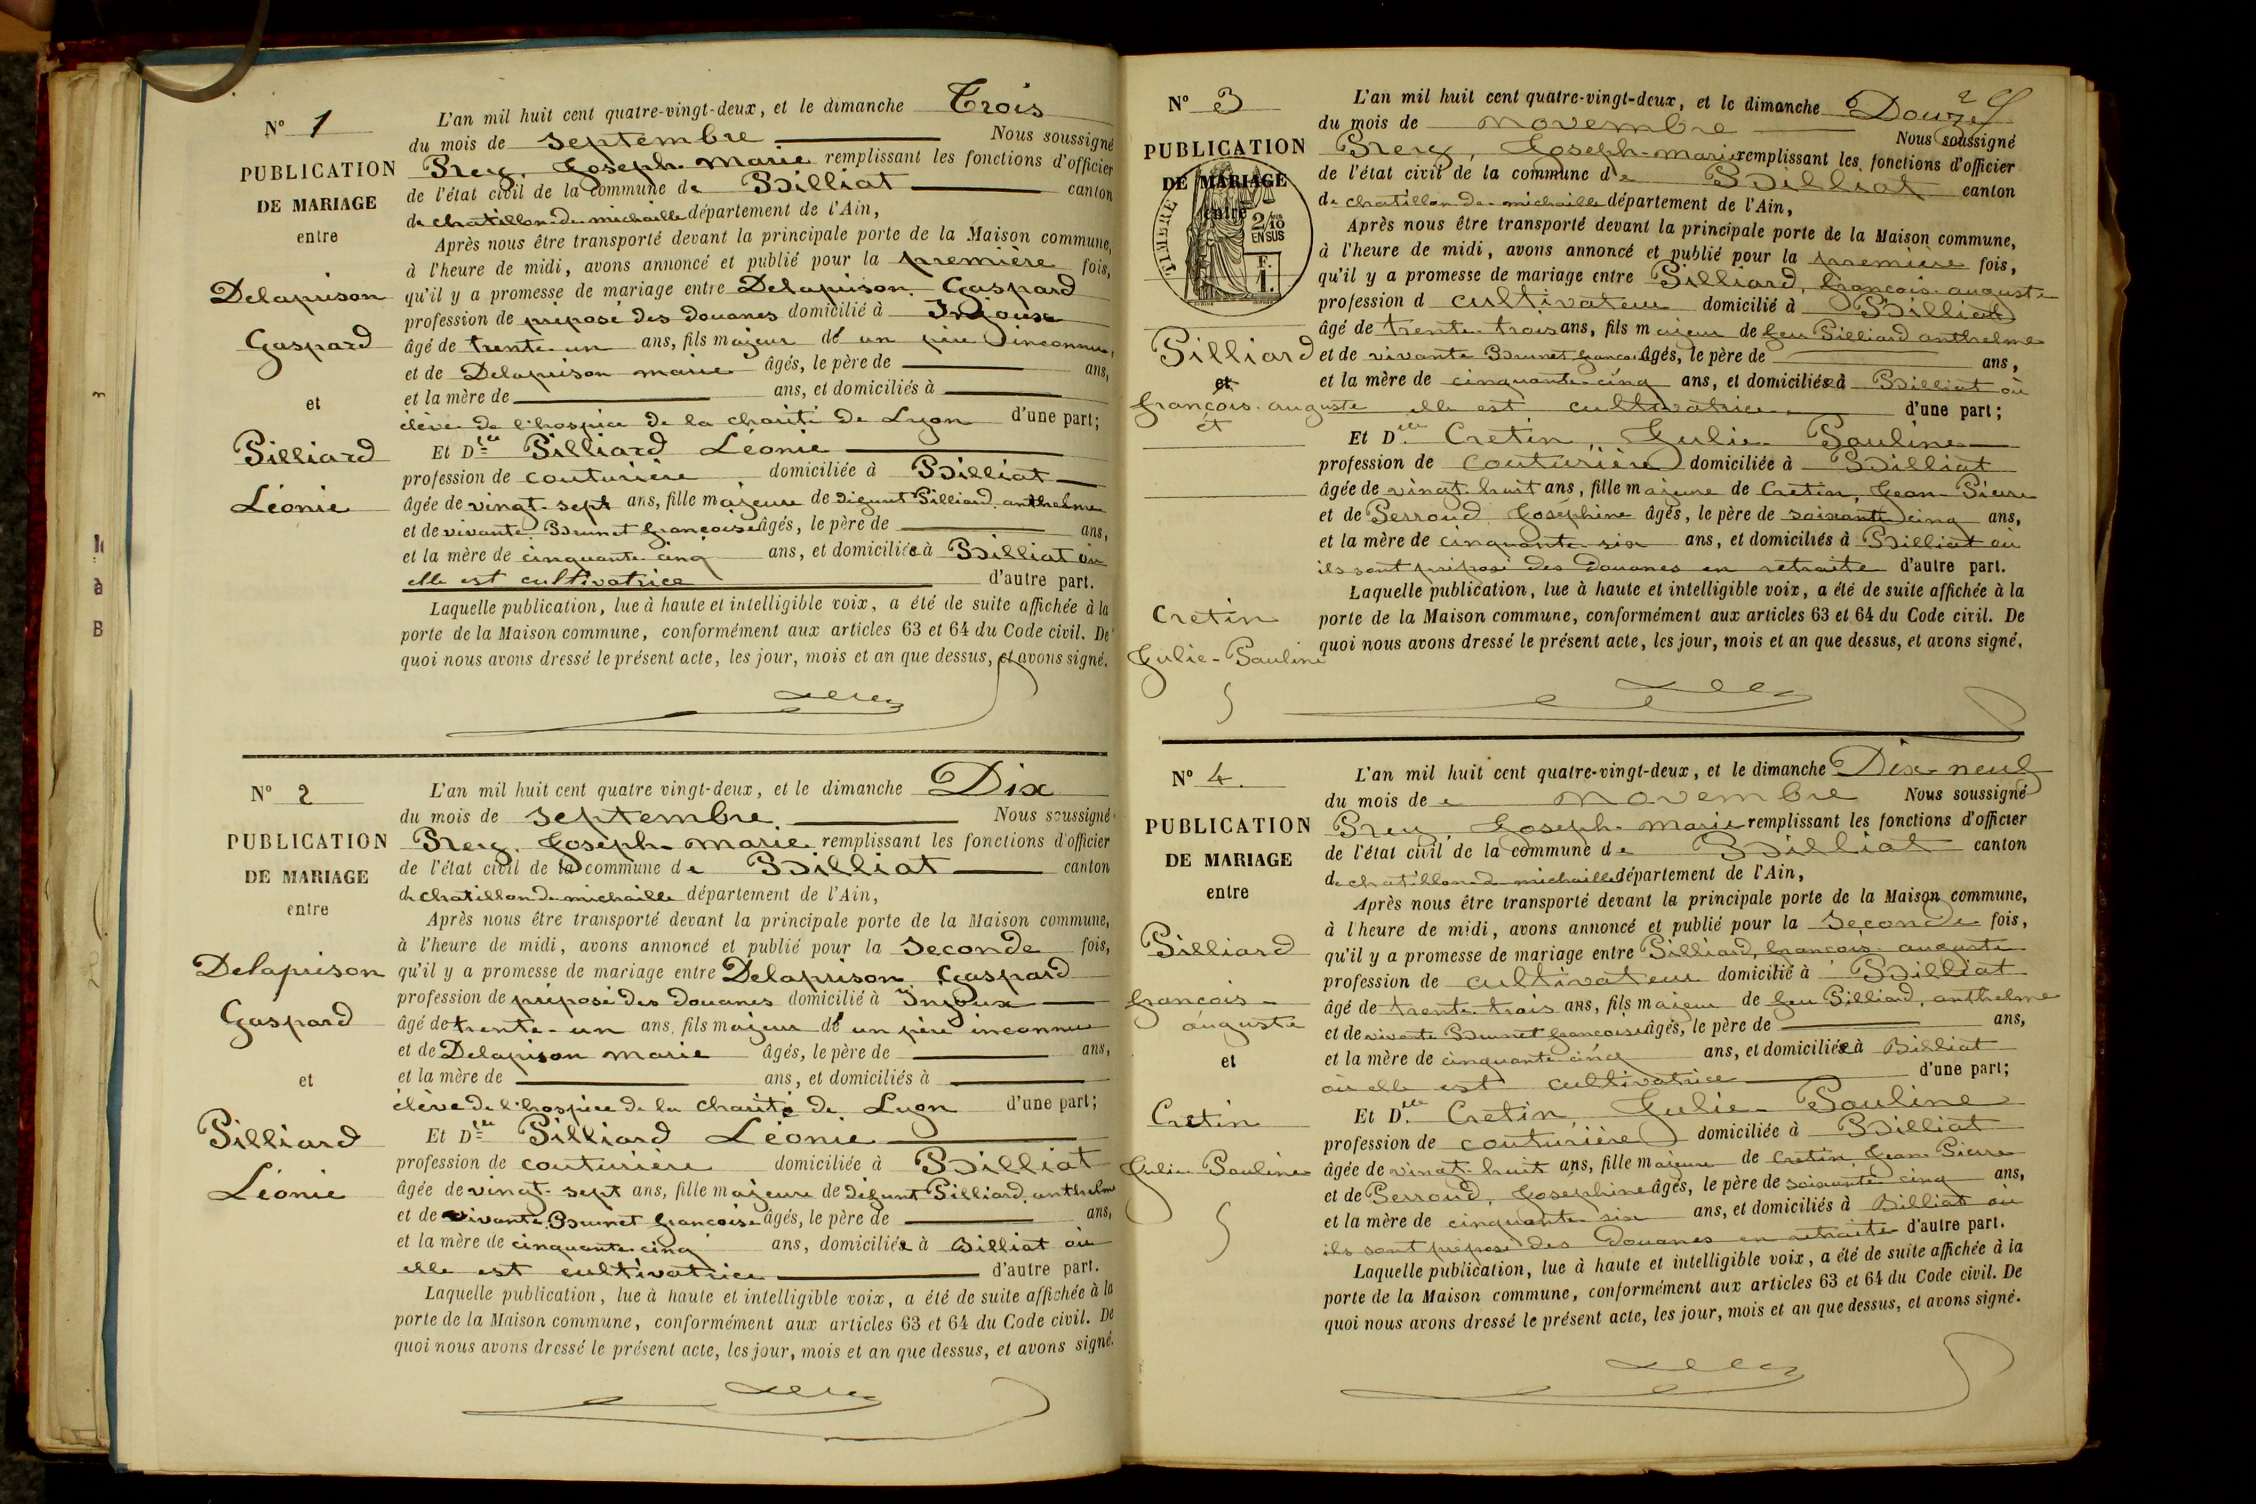 N° 1
PUBLICATION
DE MARIAGE
entre
Delaprison
Gaspard
et
Pilliard
Léonie
L'an mil huit cent quatre-vingt-deux, et le dimanche Trois
du mois de septembre Nous soussigné
Prery, Joseph-Marie remplissant les fonctions d'officier
de l'état civil de la commune de Billiat canton
de chatillon-de-michaille département de l'Ain,
Après nous être transporté devant la principale porte de la Maison commune,
à l'heure de midi, avons annoncé et publié pour la première fois,
qu'il y a promesse de mariage entre Delaprison Gaspard
profession de préposé des douanes domicilié à Injoux
âgé de trente-un ans, fils majeur de un père inconnu,
et de Delaprison marie âgés, le père de ans,
et la mère de ans, et domiciliés à
élève de l'hospice de la charité de Lyon d'une part;
Et Dlle Pilliard Léonie
profession de couturière domiciliée à Billiat
âgée de vingt-sept ans, fille majeure de défunt Pilliard anthelme
et de vivante Brunet françoise âgés, le père de ans,
et la mère de cinquante cinq ans, et domiciliée à Billiat où
elle est cultivatrice d'autre part.
Laquelle publication, lue à haute et intelligible voix, a été de suite affichée à la
porte de la Maison commune, conformément aux articles 63 et 64 du Code civil. De
quoi nous avons dressé le présent acte, les jour, mois et an que dessus, et avons signé.
N° 2
PUBLICATION
DE MARIAGE
entre
Delaprison
Gaspard
et
Pilliard
Léonie
L'an mil huit cent quatre vingt-deux, et le dimanche Dix
du mois de septembre Nous soussigné
Prery, Joseph-marie remplissant les fonctions d'officier
de l'état civil de la commune de Billiat canton
de chatillon de michaille département de l'Ain,
Après nous être transporté devant la principale porte de la Maison commune,
à l'heure de midi, avons annoncé et publié pour la seconde fois,
qu'il y a promesse de mariage entre Delaprison Gaspard
profession de préposé des douanes domicilié à Injoux
âgé de trente-un ans, fils majeur de un père inconnu
et de Delapison marie âgés, le père de ans,
et la mère de ans, et domiciliés à
élève de l'hospice de la charité de Lyon d'une part;
Et Dlle Pilliard Léonie
profession de couturière domiciliée à Billiat
âgée de vingt-sept ans, fille majeure de défunt Pilliard anthelm
et de vivante Brunet françoise âgés, le père de ans,
et la mère de cinquante cinq ans, domiciliée à Billiat où
elle est cultivatrice d'autre part.
Laquelle publication, lue à haute et intelligible voix, a été de suite affichée à la
porte de la Maison commune, conformément aux articles 63 et 64 du Code civil. De
quoi nous avons dressé le présent acte, les jour, mois et an que dessus, et avons signé.
N° 3
PUBLICATION
DE MARIAGE
entre
TIMBRE
2/10
EN SUS
F.
1.
Pilliard
et
françois-auguste
et
Cretin
Julie-Pauline
L'an mil huit cent quatre-vingt-deux, et le dimanche Douze
du mois de novembre Nous soussigné
Prery, Joseph-marie remplissant les fonctions d'officier
de l'état civil de la commune de Billiat canton
de chatillon-de-michaille département de l'Ain,
Après nous être transporté devant la principale porte de la Maison commune,
à l'heure de midi, avons annoncé et publié pour la première fois,
qu'il y a promesse de mariage entre Pilliard, françois-auguste
profession d cultivateur domicilié à Billiat
âgé de trente-trois ans, fils majeur de feu Pilliard anthelme
et de vivante Brunet françoise âgés, le père de ans,
et la mère de cinquante-cinq ans, et domiciliée à Billiat où
elle est cultivatrice d'une part;
Et Dlle Cretin, Julie-Pauline
profession de couturière domiciliée à Billiat
âgée de vingt-huit ans, fille majeure de Cretin, Jean-Pierre
et de Perroud Joséphine âgés, le père de soixante cinq ans,
et la mère de cinquante-six ans, et domiciliés à Billiat où
ils sont préposé des Douanes en retraite d'autre part.
Laquelle publication, lue à haute et intelligible voix, a été de suite affichée à la
porte de la Maison commune, conformément aux articles 63 et 64 du Code civil. De
quoi nous avons dressé le présent acte, les jour, mois et an que dessus, et avons signé.
N° 4
PUBLICATION
DE MARIAGE
entre
Pilliard
françois-
auguste
et
Cretin
Julie Pauline
L'an mil huit cent quatre-vingt-deux, et le dimanche Dix-neuf
du mois de novembre Nous soussigné
Prery, Joseph-marie remplissant les fonctions d'officier
de l'état civil de la commune de Billiat canton
de chatillon-de-michaille département de l'Ain,
Après nous être transporté devant la principale porte de la Maison commune,
à l'heure de midi, avons annoncé et publié pour la seconde fois,
qu'il y a promesse de mariage entre Pilliard, françois-auguste
profession de cultivateur domicilié à Billiat
âgé de trente-trois ans, fils majeur de feu Pilliard, anthelme
et de vivante Brunet françoise âgés, le père de ans,
et la mère de cinquante-cinq ans, et domiciliée à Billiat
où elle est cultivatrice d'une part;
Et Dlle Cretin, Julie-Pauline
profession de couturière domiciliée à Billiat
âgée de vingt-huit ans, fille majeure de Cretin Jean-Pierre
et de Perroud, Joséphine âgés, le père de soixante cinq ans,
et la mère de cinquante-six ans, et domiciliés à Billiat où
ils sont préposé des Douanes en retraite d'autre part.
Laquelle publication, lue à haute et intelligible voix, a été de suite affichée à la
porte de la Maison commune, conformément aux articles 63 et 64 du Code civil. De
quoi nous avons dressé le présent acte, les jour, mois et an que dessus, et avons signé.